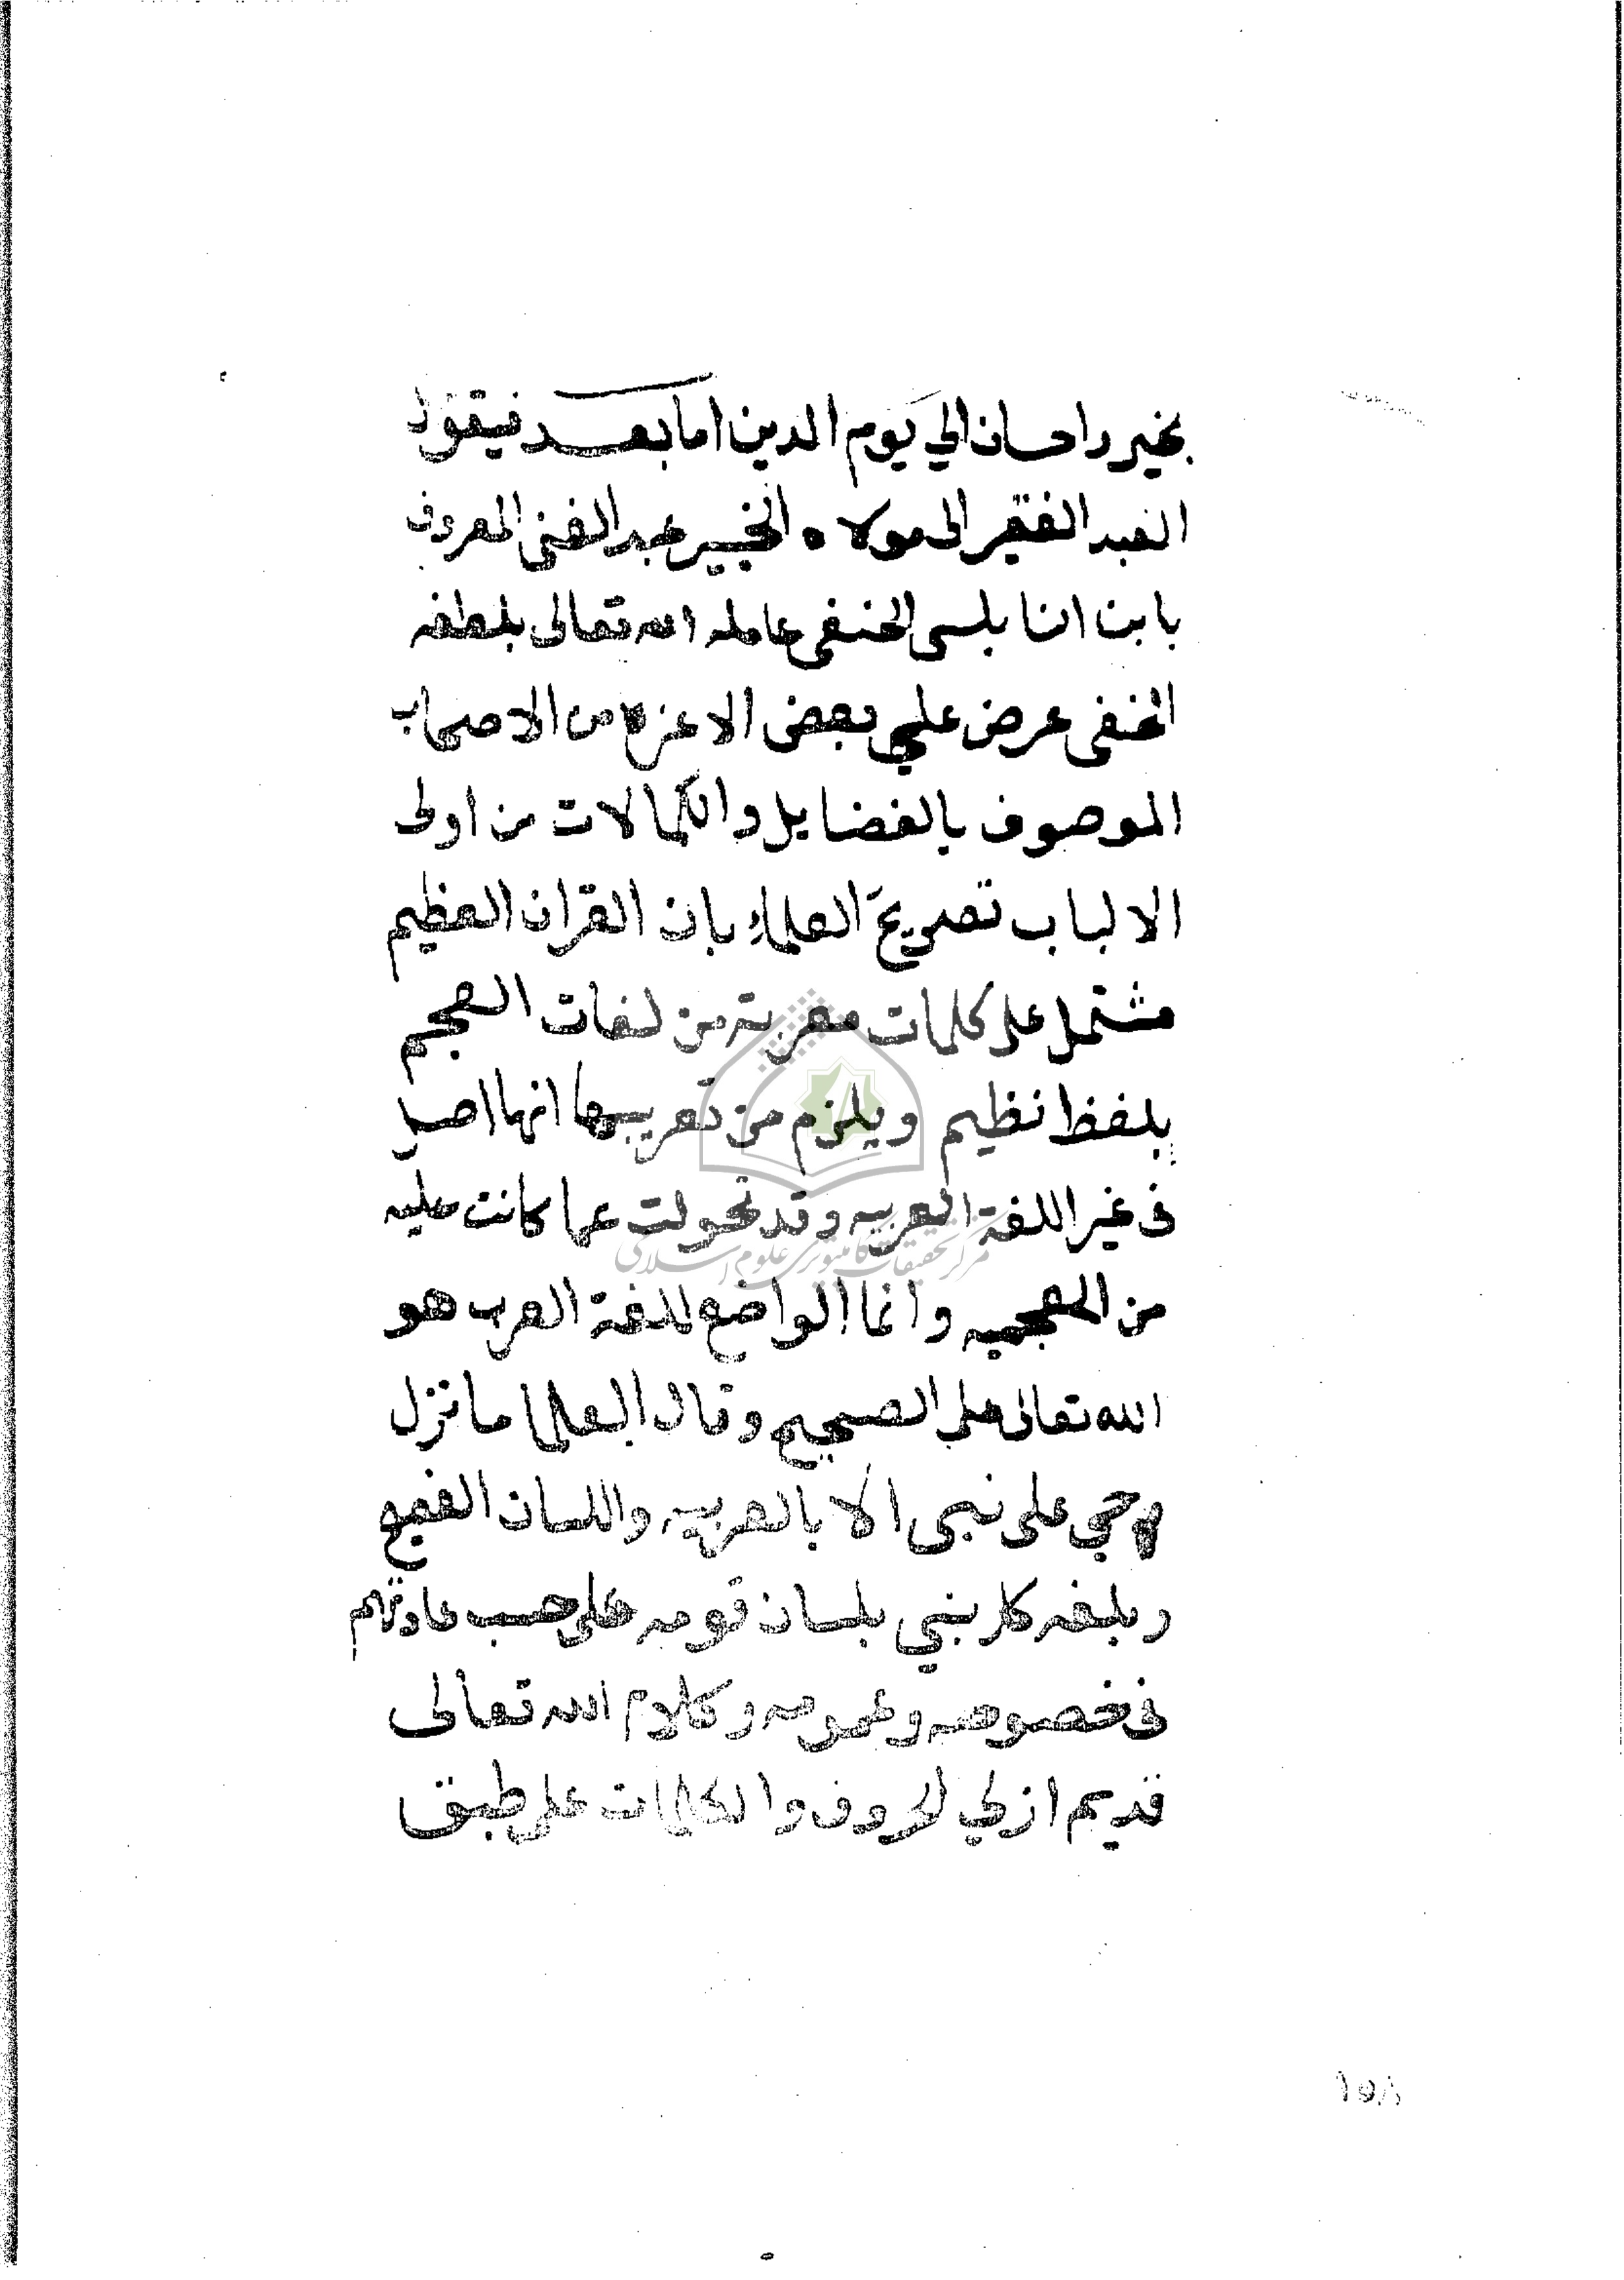 بخير واحسان الي يوم الدين اما بعد فيقول
العبد الفقير الى مولاه الخبير عبد الغنى المعروف
بابن النابلسى الحنفى عامله الله تعالى بلطفه
الخفى عرض علي بعض الاعزة من الاصحاب
الموصوف بالفضايل والكمالات من اولى
الالباب تصريح العلماء بان القران العظيم
مشتمل على كلمات معربة من لغات العجم
بلفظ نظيم ويلزم من تعريبها انها اصل
فى غير اللغة العربيه وقد تحولت عما كانت عليه
من العجميه وانما الواضع للغة العرب هو
الله تعالى على الصحيح وقال العلما ما نزل
وحي على نبى الا بالعربيه واللسان الفصيح
وبلغه كل نبي بلسان قومه على حسب عادتهم
فى خصوصه وعمومه وكلام الله تعالى
قديم ازلي الحروف والكلمات على طبق
مركز تحقيقات كامپيوتری علوم اسلامی
١٥٨